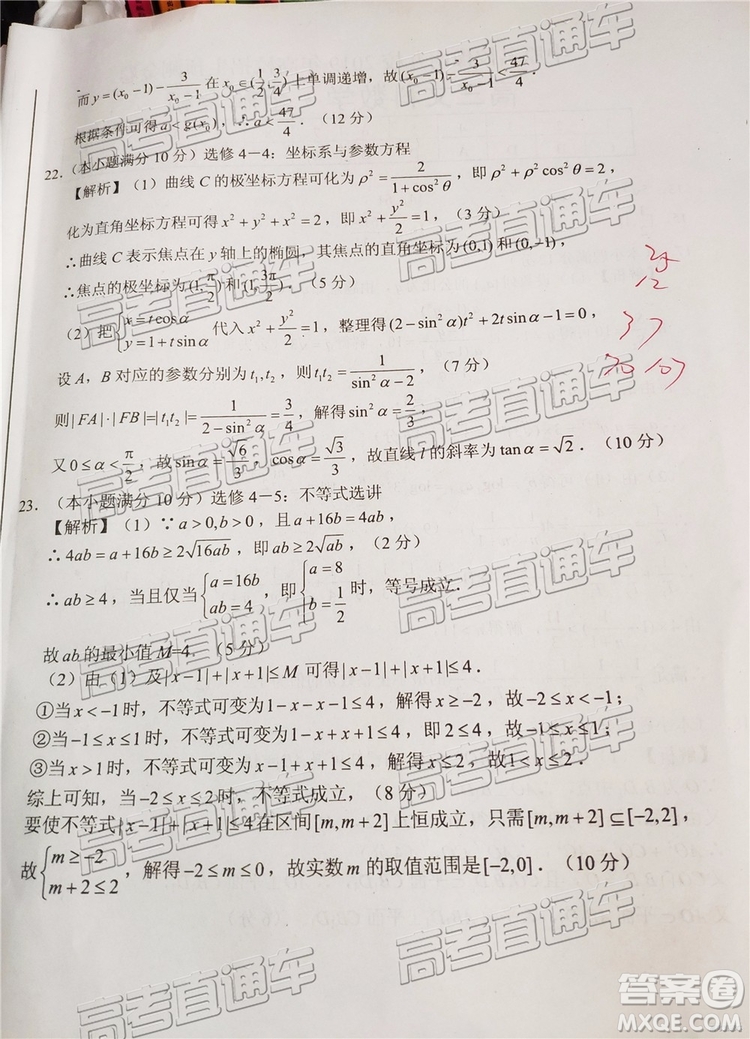 而y=(x₀-1)-3/(x₀-1)在x₀∈(1/2,3/4)上单调递增，故(x₀-1)-3/(x₀-1)<47/4.
根据条件可得a<g(x₀)，∴a<47/4.（12分）
22.（本小题满分10分）选修4－4：坐标系与参数方程
【解析】（1）曲线C的极坐标方程可化为ρ²=2/(1+cos²θ)，即ρ²+ρ²cos²θ=2，
化为直角坐标方程可得x²+y²+x²=2，即x²+y²/2=1，（3分）
∴曲线C表示焦点在y轴上的椭圆，其焦点的直角坐标为(0,1)和(0,-1)，
∴焦点的极坐标为(1,π/2)和(1,3π/2).（5分）
（2）把{x=tcosα y=1+tsinα 代入x²+y²/2=1，整理得(2-sin²α)t²+2tsinα-1=0，
设A，B对应的参数分别为t₁,t₂，则t₁t₂=1/(sin²α-2)，（7分）
则|FA|·|FB|=|t₁t₂|=1/(2-sin²α)=3/4，解得sin²α=2/3，
又0≤α<π/2，故sinα=√6/3，cosα=√3/3，故直线l的斜率为tanα=√2.（10分）
23.（本小题满分10分）选修4－5：不等式选讲
【解析】（1）∵a>0,b>0，且a+16b=4ab，
∴4ab=a+16b≥2√16ab，即ab≥2√ab，（2分）
∴ab≥4，当且仅当{a=16b ab=4，即{a=8 b=1/2 时，等号成立.
故ab的最小值M=4.（5分）
（2）由（1）及|x-1|+|x+1|≤M可得|x-1|+|x+1|≤4.
①当x<-1时，不等式可变为1-x-x-1≤4，解得x≥-2，故-2≤x<-1；
②当-1≤x≤1时，不等式可变为1-x+x+1≤4，即2≤4，故-1≤x≤1；
③当x>1时，不等式可变为x-1+x+1≤4，解得x≤2，故1<x≤2.
综上可知，当-2≤x≤2时，不等式成立，（8分）
要使不等式|x-1|+|x+1|≤4在区间[m,m+2]上恒成立，只需[m,m+2]⊆[-2,2]，
故{m≥-2 m+2≤2，解得-2≤m≤0，故实数m的取值范围是[-2,0].（10分）
12
37
高考直通车
答案圈
MXQE.COM